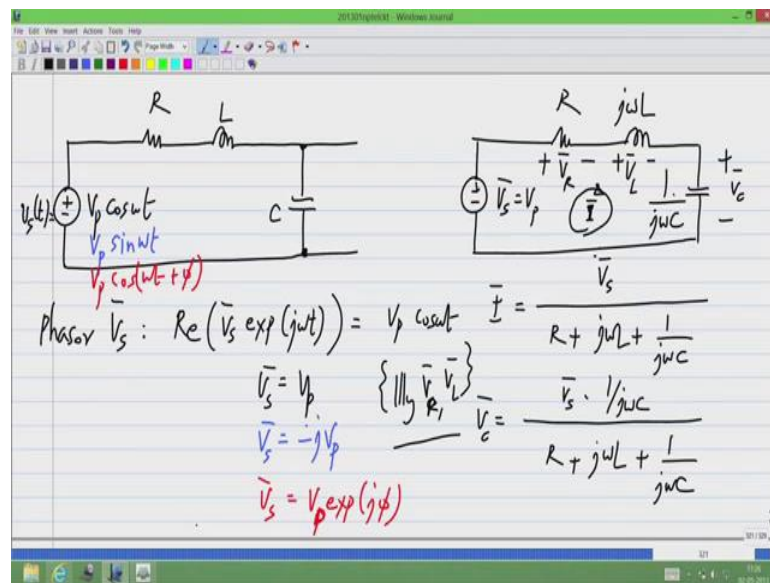 201301nptelckt - Windows Journal
File Edit View Insert Actions Tools Help
Page Width
B I
R L
V_s(t)= V_p cosωt
V_p sinωt
V_p cos(ωt + φ)
C
R jωL
+ V̄_R - + V̄_L -
V̄_s = V_p
Ī
1/jωC
+ V̄_c -
Phasor V̄_s : Re(V̄_s exp(jωt)) = V_p cosωt
V̄_s = V_p
V̄_s = -jV_p
V̄_s = V_p exp(jφ)
{ lllly V̄_R, V̄_L }
Ī = V̄_s / (R + jωL + 1/jωC)
V̄_c = V̄_s · 1/jωC / (R + jωL + 1/jωC)
321